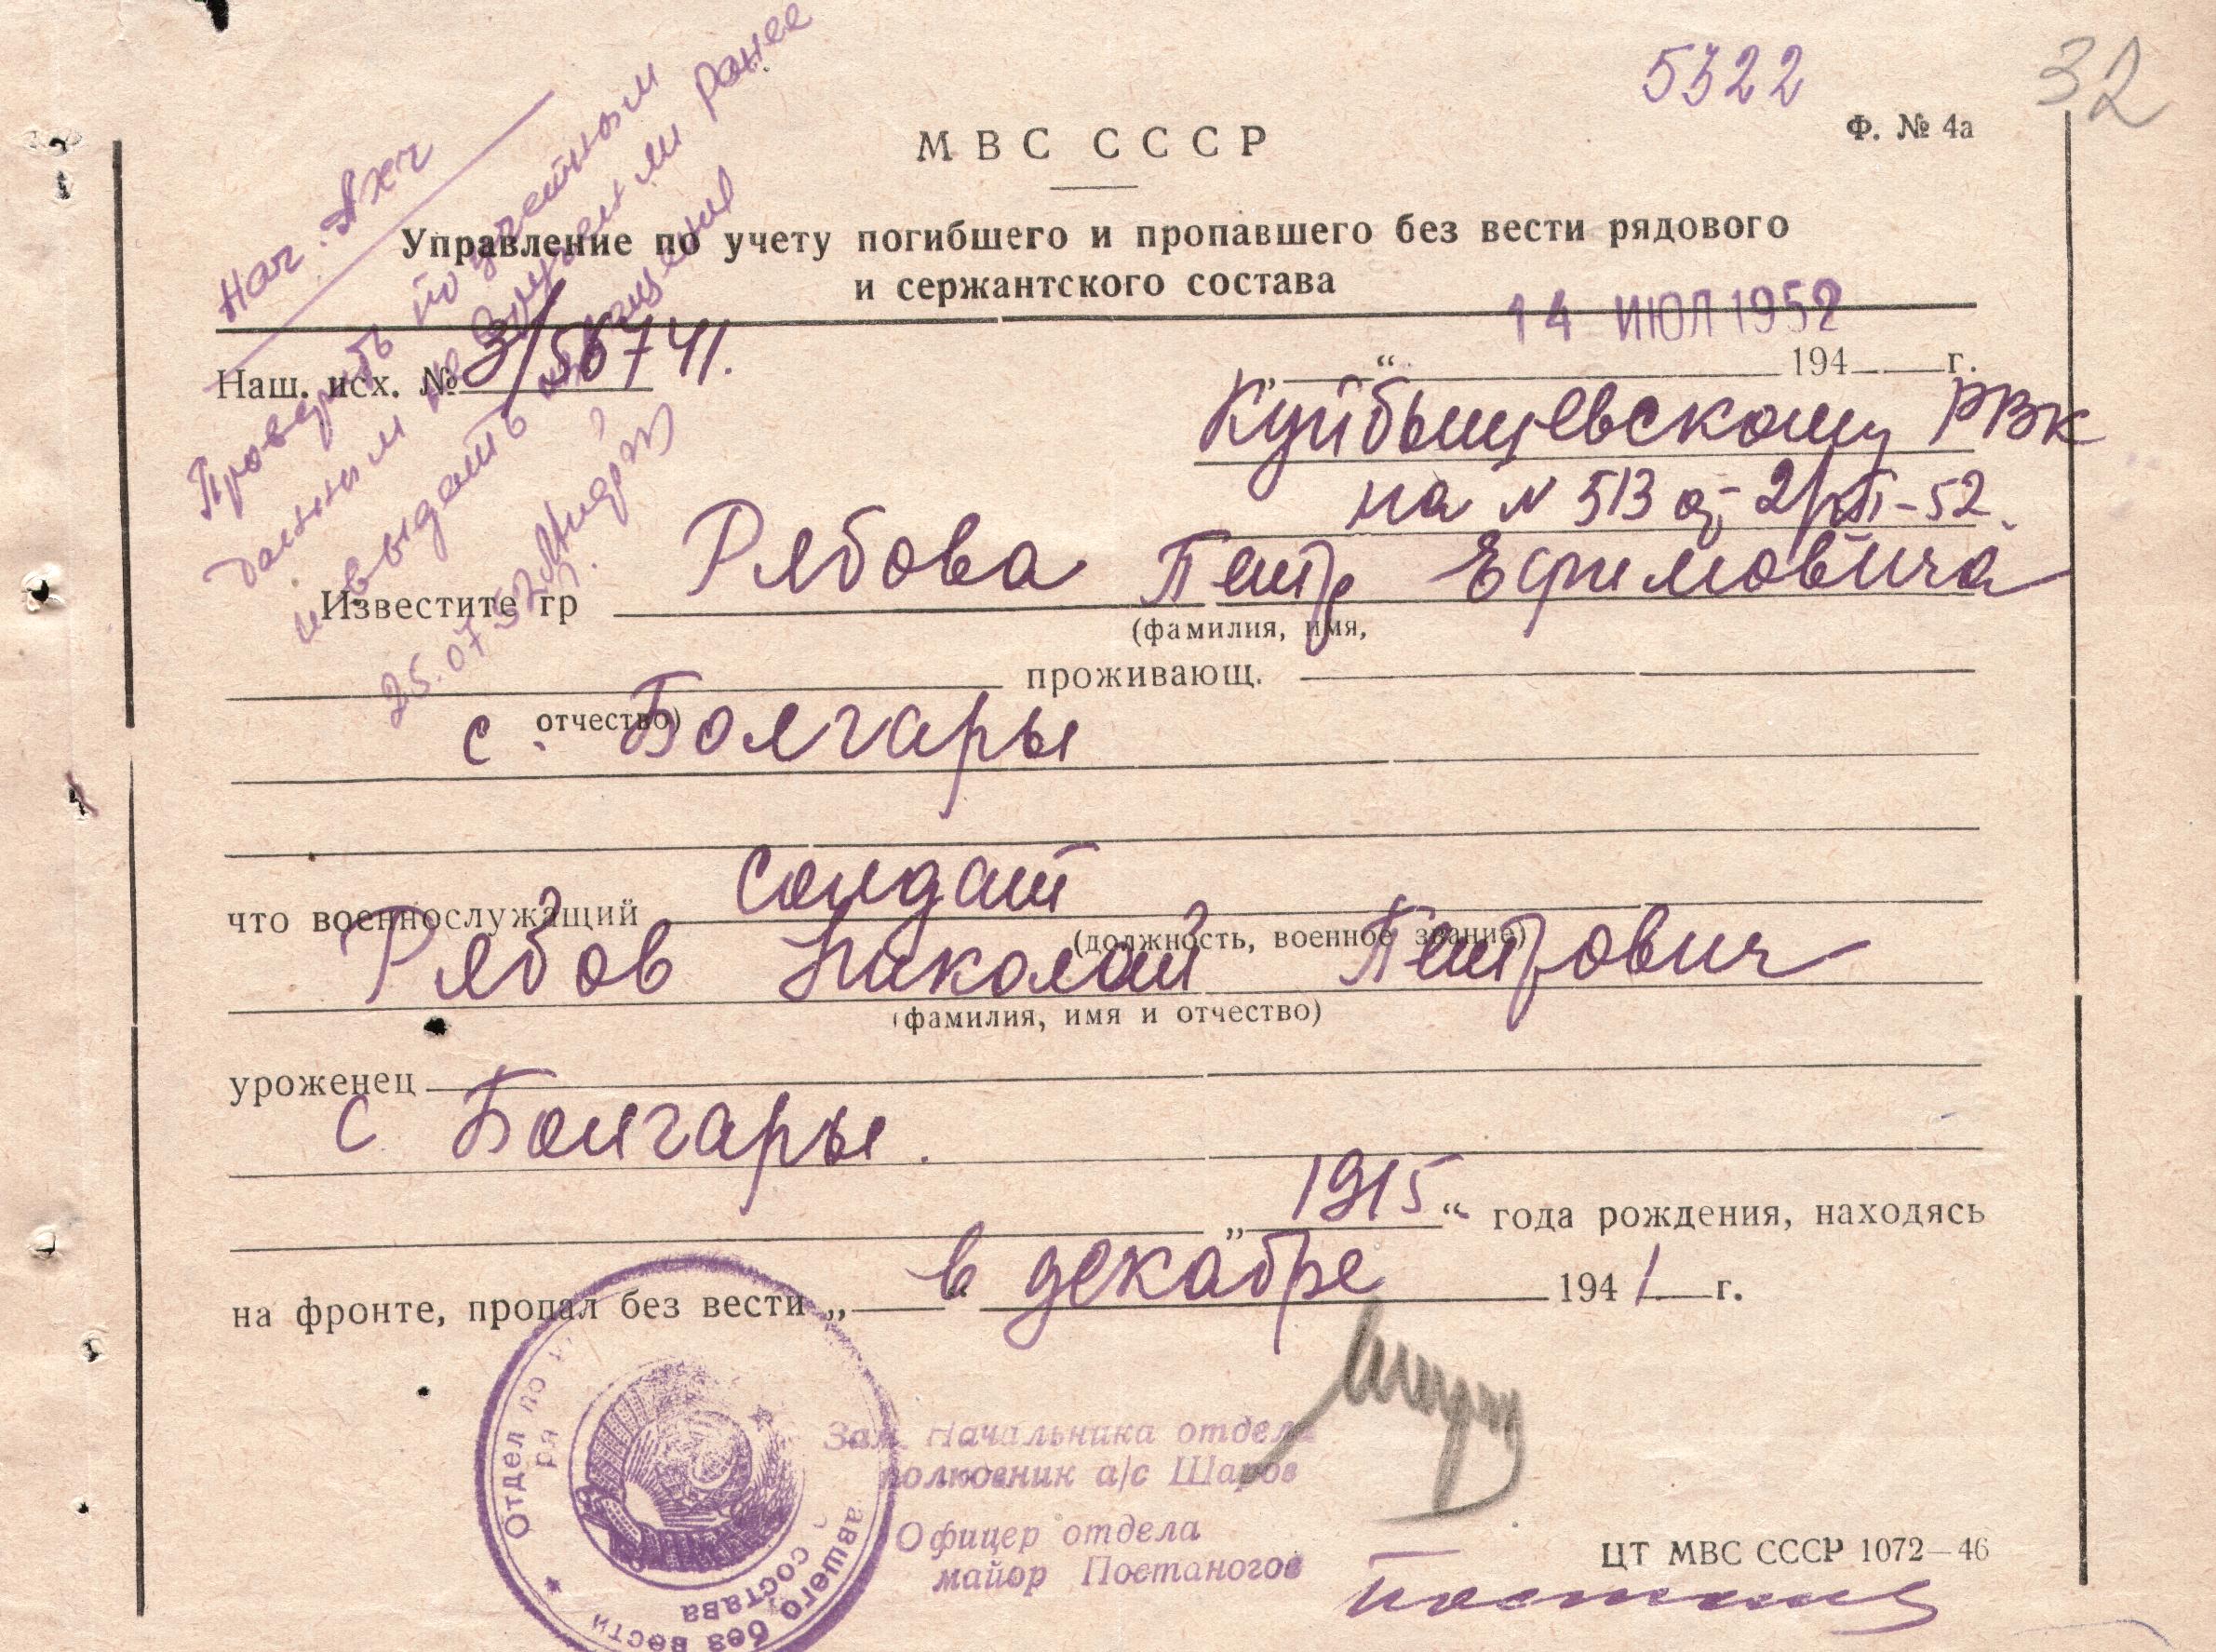 5322
32
Ф. № 4а
МВС СССР
Управление по учету погибшего и пропавшего без вести рядового
и сержантского состава
Нач.
Проверить по учетным
данным не вручен ли ранее
и выдать извещение
25.07.52
14 ИЮЛ 1952
Наш. исх. № 3/56741.
„ “ 194 г.
Куйбышевскому РВК
на № 513 от 2/VII-52.
Известите гр Рябова Петр Ефимовича
(фамилия, имя,
проживающ.
отчество)
с. Болгары
что военнослужащий солдат
(должность, военное звание)
Рябов Николай Петрович
(фамилия, имя и отчество)
уроженец
с Болгары.
„ 1915 “ года рождения, находясь
на фронте, пропал без вести „ в декабре 1941 г.
Зам. Начальника отдела
полковник а/с Шаров
Офицер отдела
майор Постаногов
Отдел по
авшего без вести
ря
состава
ЦТ МВС СССР 1072—46